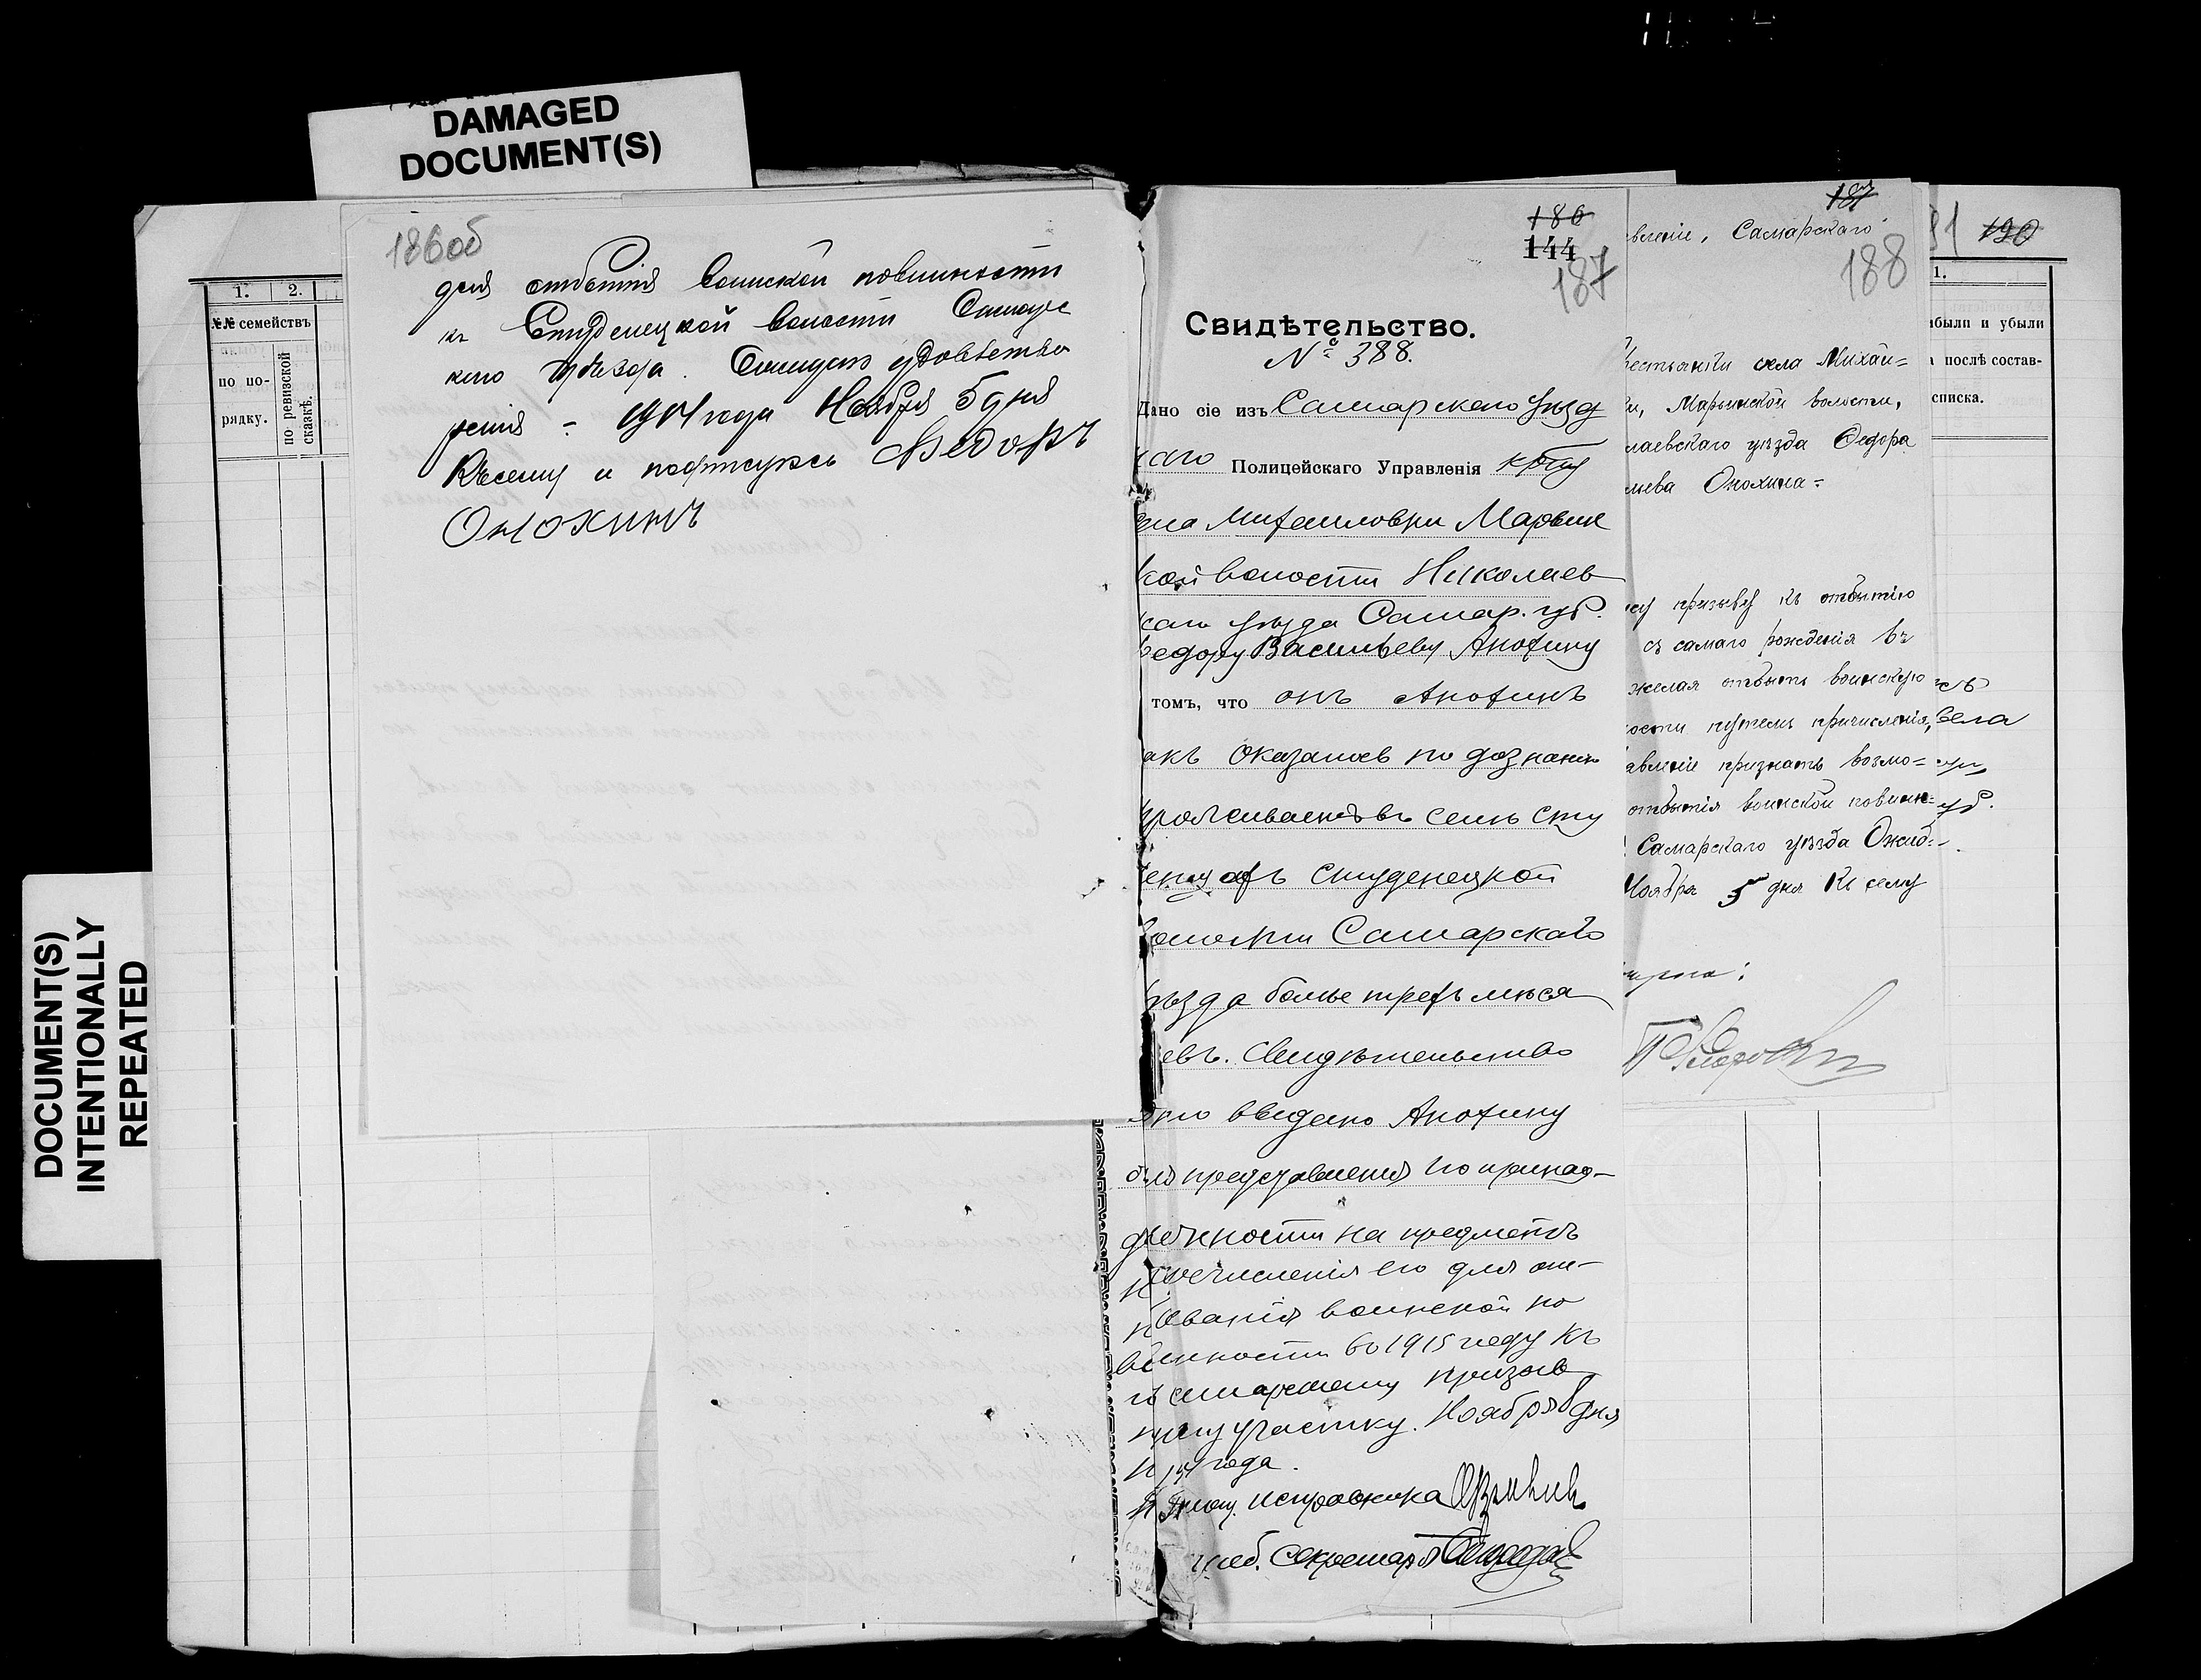 DAMAGED
DOCUMENT(S)
DOCUMENT(S)
INTENTIONALLY
REPEATED
1. 2.
№№ семействъ
по по-
рядку.
по ревизской
сказкѣ.
186об
для отбытія воинской повинности
къ Студенецкой волости Самарс
каго уѣзда. Ожидаю удовлетво
ренія - 1914 года Ноября 5 дня
Къ сему и подпишусь Ѳедоръ
Онохинъ
186
144
187
Свидѣтельство.
№ 388.
Дано сіе изъ Самарскаго уѣзд
наго Полицейскаго Управленія кр-ну
села Михайловки Марьин
ской волости Николаев
скаго уѣзда Самар. губ.
Ѳедору Васильеву Анохину
томъ, что онъ Анохинъ
какъ оказалось по дознанію
проживаетъ въ селѣ Сту
денцахъ Студенецкой
волости Самарскаго
уѣзда болѣе трехъ мѣся
цевъ. Свидѣтельство
это выдано Анохину
для представленія по принад-
лежности на предметъ
причисленія его для от-
бованія воинской по
винности въ 1915 году къ
Самарскому призыв
ному участку. Ноября дня
1914 года.
Помощ. исправника
Секретаря
187
188
вленіе, Самарскаго
крестьянки села Михай=
и, Марьинской волости,
лаевскаго уѣзда Ѳедора
льева Онохина=
му призыву къ отбытію
съ самаго рожденія въ
желая отбыть воинскую
ности путемъ причисленія,
авленіе признать возмо=
отбытія воинской повин=
Самарскаго уѣзда Ожид=
Ноября 5 дня Къ сему
села
уб.
190
1.
ибыли и убыли
послѣ состав-
списка.